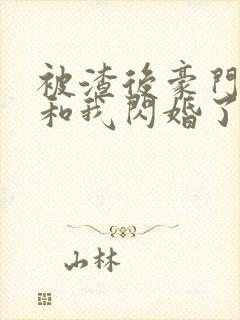 被渣後豪門
和我閃婚了
山林